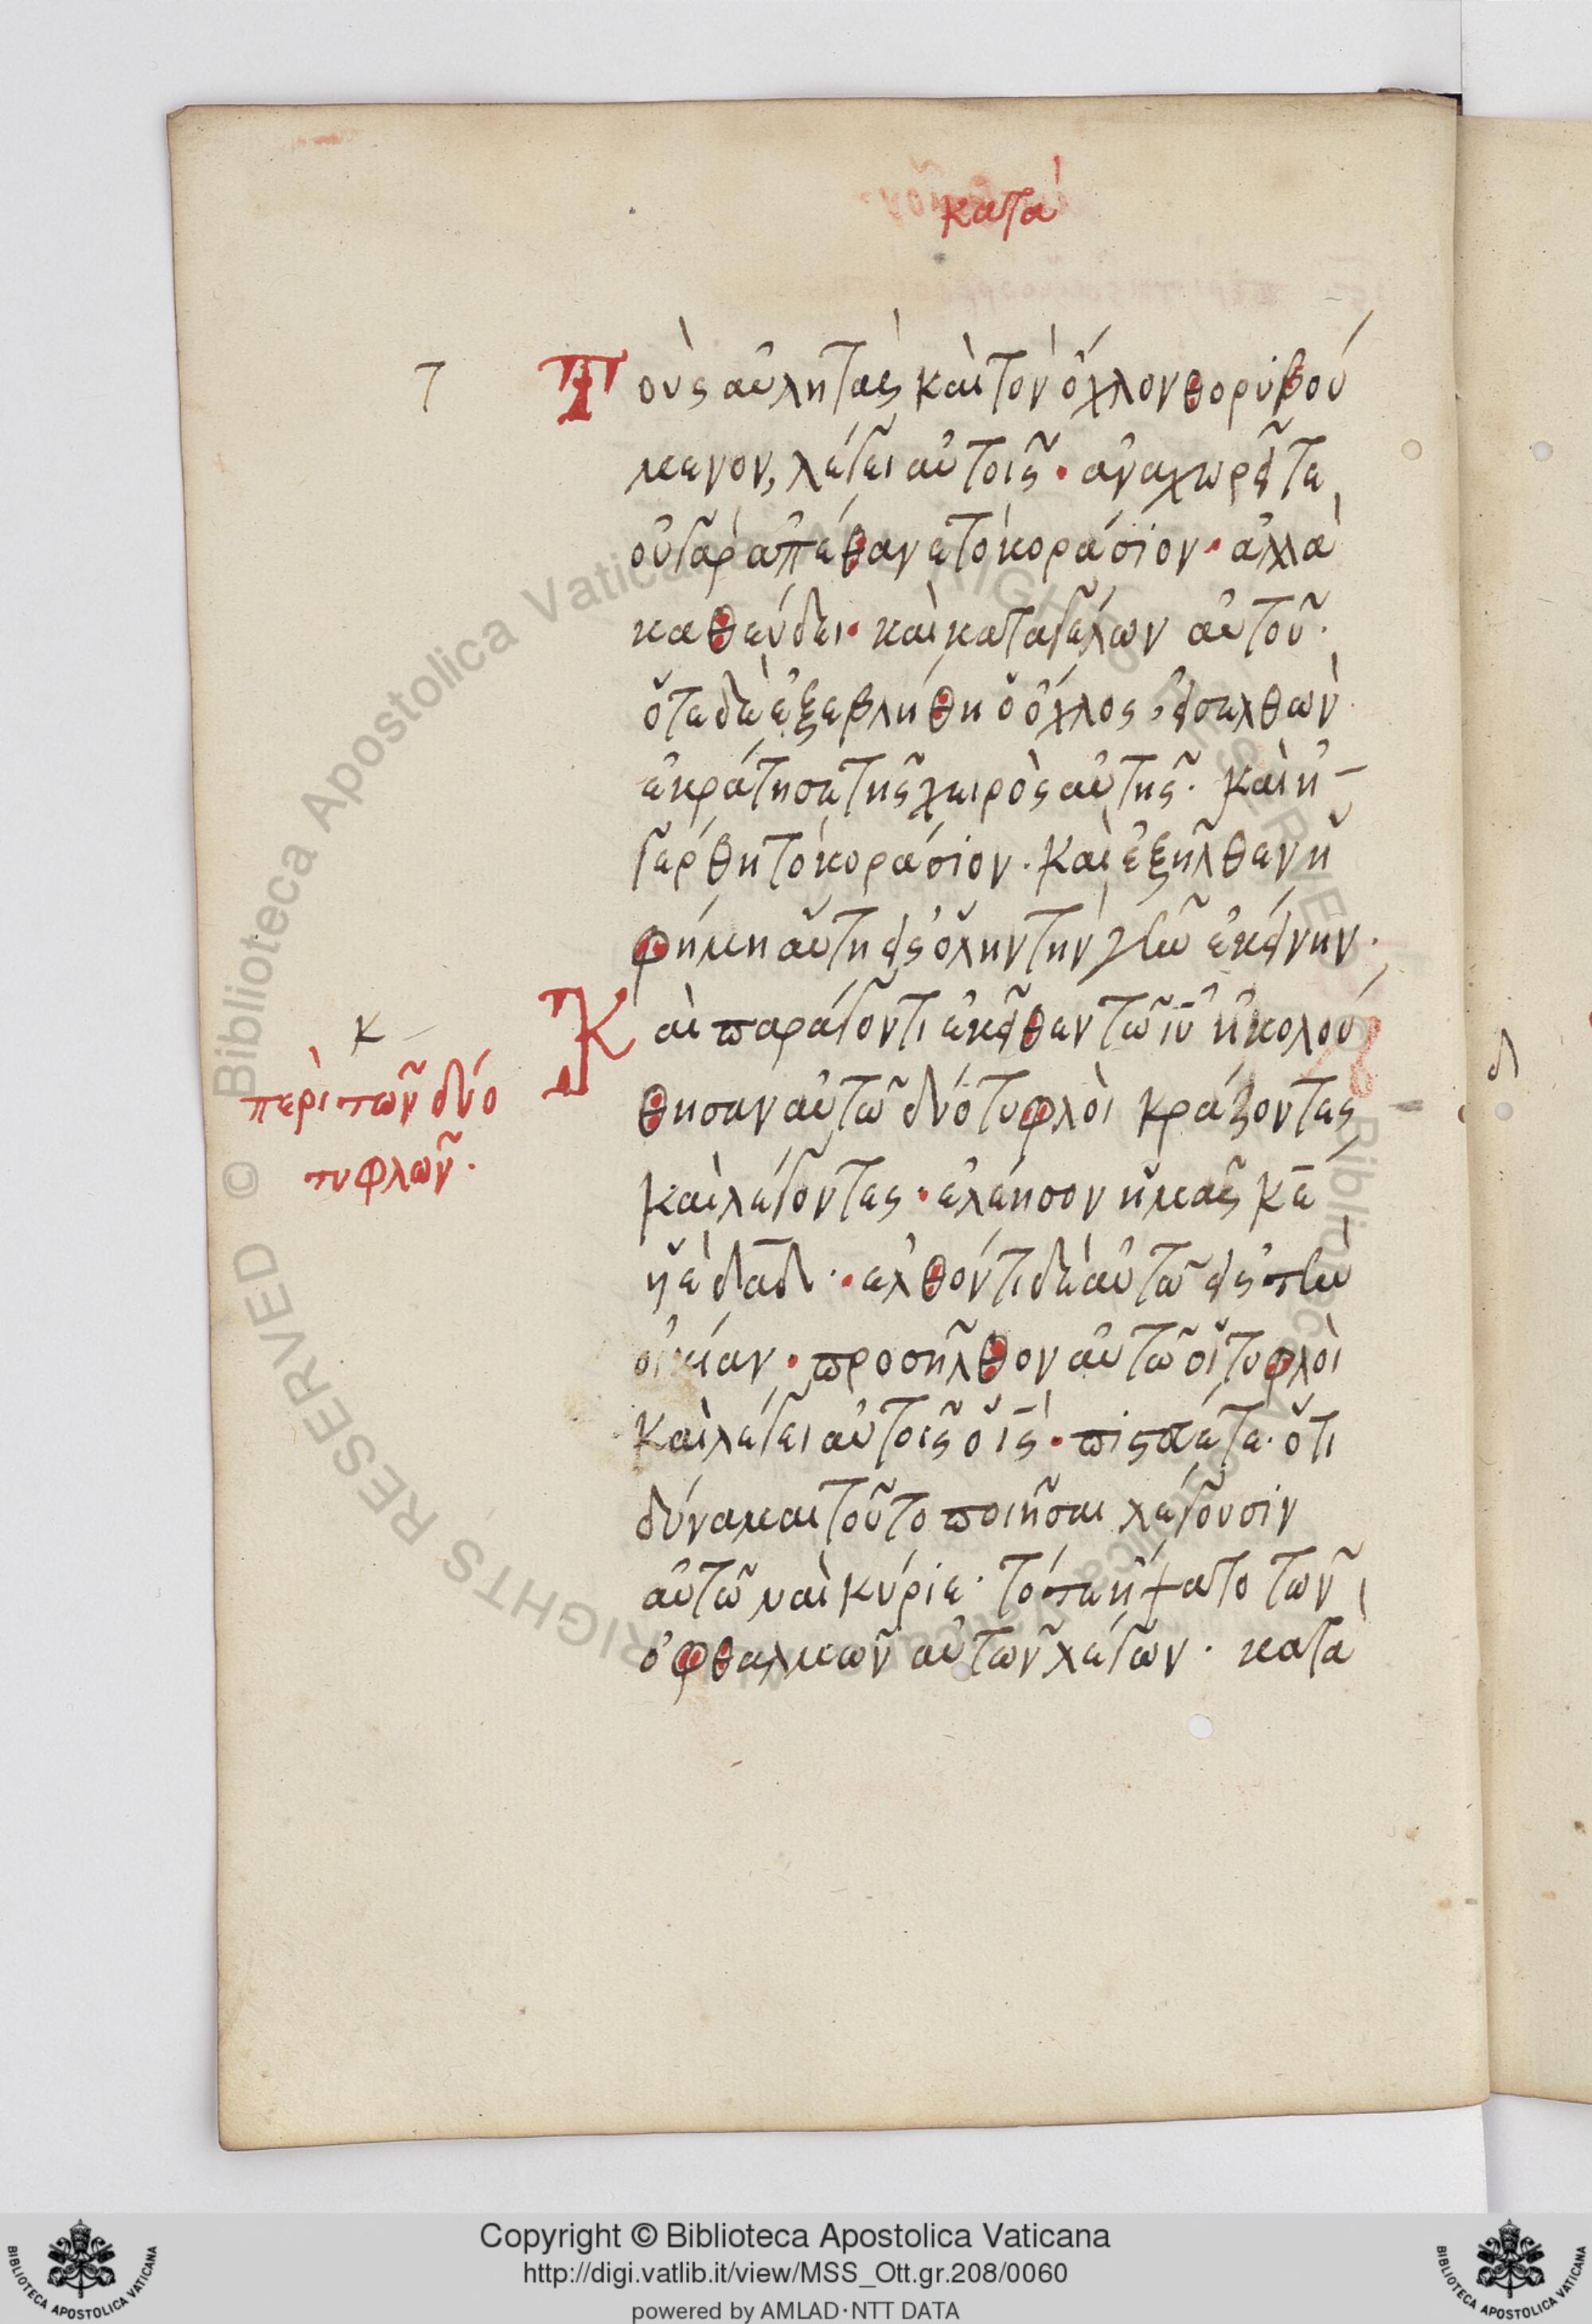 κατὰ
τ
Τοὺς αὐλητὰς καὶ τὸν ὄχλον θορυβού
μενον, λέγει αὐτοῖς· ἀναχωρεῖτε
οὐ γὰρ ἀπέθανε τὸ κοράσιον· ἀλλὰ
καθεύδει· καὶ κατεγέλων αὐτοῦ·
ὅτε δὲ ἐξεβλήθη ὁ ὄχλος, εἰσελθὼν
ἐκράτησε τῆς χειρὸς αὐτῆς· καὶ ἠ
γέρθη τὸ κοράσιον· καὶ ἐξῆλθεν ἡ
φήμη αὕτη εἰς ὅλην τὴν γῆν ἐκείνην·
Καὶ παράγοντι ἐκεῖθεν τῶ ιῦ ἠκολού
κ
περὶ τῶν δύο
τυφλῶν·
θησαν αὐτῶ δύο τυφλοὶ κράζοντες
καὶ λέγοντες· ἐλέησον ἡμᾶς κε
υἱὲ δαδ· ἐλθόντι δὲ αὐτῶ εἰς τὴν
οἰκίαν· προσῆλθον αὐτῶ οἱ τυφλοὶ
καὶ λέγει αὐτοῖς ὁ ις· πιστεύετε· ὅτι
δύναμαι τοῦτο ποιῆσαι λέγουσιν
αὐτῶ ναὶ κύριε· τότε ἥψατο τῶν
ὀφθαλμῶν αὐτῶν λέγων· κατὰ
δ
© Biblioteca Apostolica Vaticana ALL RIGHTS RESERVED
Copyright © Biblioteca Apostolica Vaticana
http://digi.vatlib.it/view/MSS_Ott.gr.208/0060
powered by AMLAD·NTT DATA
BIBLIOTECA APOSTOLICA VATICANA
BIBLIOTECA APOSTOLICA VATICANA